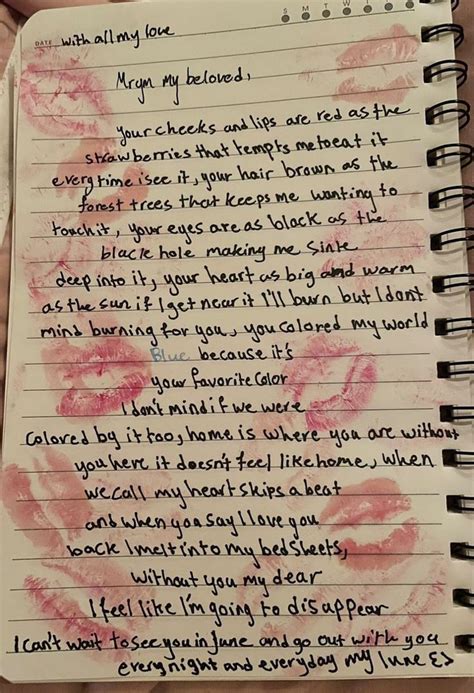 S M T W T F S
DATE with all my love
Mrym my beloved,
Your cheeks and lips are red as the
strawberries that tempts me to eat it
every time i see it, your hair brown as the
forest trees that keeps me wanting to
touch it, your eyes are as black as the
black hole making me sinke
deep into it, your heart as big and warm
as the sun if I get near it I'll burn but I dont
mind burning for you, you colored my world
Blue because it's
your favorite color
I don't mind if we were
colored by it too, home is where you are without
you here it doesn't feel like home, when
we call my heart skips a beat
and when you say I love you
back I melt into my bed sheets,
without you my dear
I feel like I'm going to disappear
I can't wait to see you in June and go out with you
every night and everyday my lune <3